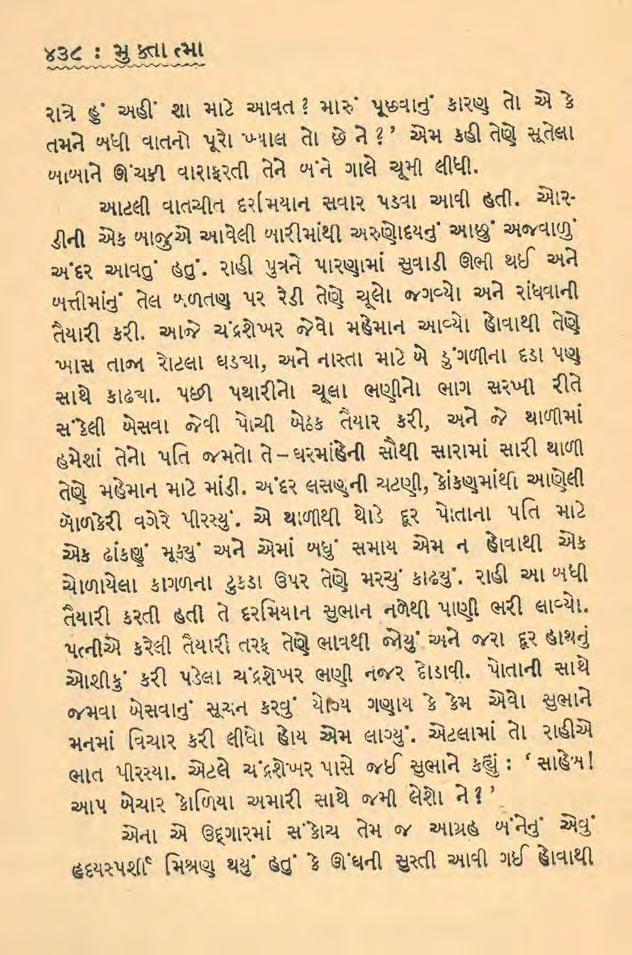 ૪૩૮ : મુક્તાત્મા
રાત્રે હું અહીં શા માટે આવત ? મારું પૂછવાનું કારણ તો એ કે
તમને બધી વાતનો પૂરો ખ્યાલ તો છે ને ?’ એમ કહી તેણે સૂતેલા
બાબાને ઊંચકી વારાફરતી તેને બંને ગાલે ચૂમી લીધી.
આટલી વાતચીત દરમિયાન સવાર પડવા આવી હતી. ઓર-
ડીની એક બાજુએ આવેલી બારીમાંથી અરુણોદયનું આછું અજવાળું
અંદર આવતું હતું. રાહી પુત્રને પારણામાં સુવાડી ઊભી થઈ અને
બત્તીમાંનું તેલ બળતણ પર રેડી તેણે ચૂલો જગવ્યો અને રાંધવાની
તૈયારી કરી. આજે ચંદ્રશેખર જેવો મહેમાન આવ્યો હોવાથી તેણે
ખાસ તાજા રોટલા ઘડ્યા, અને નાસ્તા માટે બે ડુંગળીના દડા પણ
સાથે કાઢ્યા. પછી પથારીનો ચૂલા ભણીનો ભાગ સરખી રીતે
સંકેલી બેસવા જેવી પોચી બેઠક તૈયાર કરી, અને જે થાળીમાં
હમેશાં તેનો પતિ જમતો તે – ઘરમાંહેની સૌથી સારામાં સારી થાળી
તેણે મહેમાન માટે માંડી. અંદર લસણની ચટણી, કોંકણમાંથી આણેલી
બોળકેરી વગેરે પીરસ્યું. એ થાળીથી થોડે દૂર પોતાના પતિ માટે
એક ઢાંકણું મૂક્યું અને એમાં બધું સમાય એમ ન હોવાથી એક
ચોળાયેલા કાગળના ટુકડા ઉપર તેણે મરચું કાઢ્યું. રાહી આ બધી
તૈયારી કરતી હતી તે દરમિયાન સુભાન નળેથી પાણી ભરી લાવ્યો.
પત્નીએ કરેલી તૈયારી તરફ તેણે ભાવથી જોયું અને જરા દૂર હાથનું
ઓશીકું કરી પડેલા ચંદ્રશેખર ભણી નજર દોડાવી. પોતાની સાથે
જમવા બેસવાનું સૂચન કરવું યોગ્ય ગણાય કે કેમ એવો સુભાને
મનમાં વિચાર કરી લીધો હોય એમ લાગ્યું. એટલામાં તો રાહીએ
ભાત પીરસ્યા. એટલે ચંદ્રશેખર પાસે જઈ સુભાને કહ્યું : ‘ સાહેબ!
આપ બેચાર કોળિયા અમારી સાથે જમી લેશો ને ? ’
એના એ ઉદ્ગારમાં સંકોચ તેમ જ આગ્રહ બંનેનું એવું
હૃદયસ્પર્શી મિશ્રણ થયું હતું કે ઊંઘની સુસ્તી આવી ગઈ હોવાથી